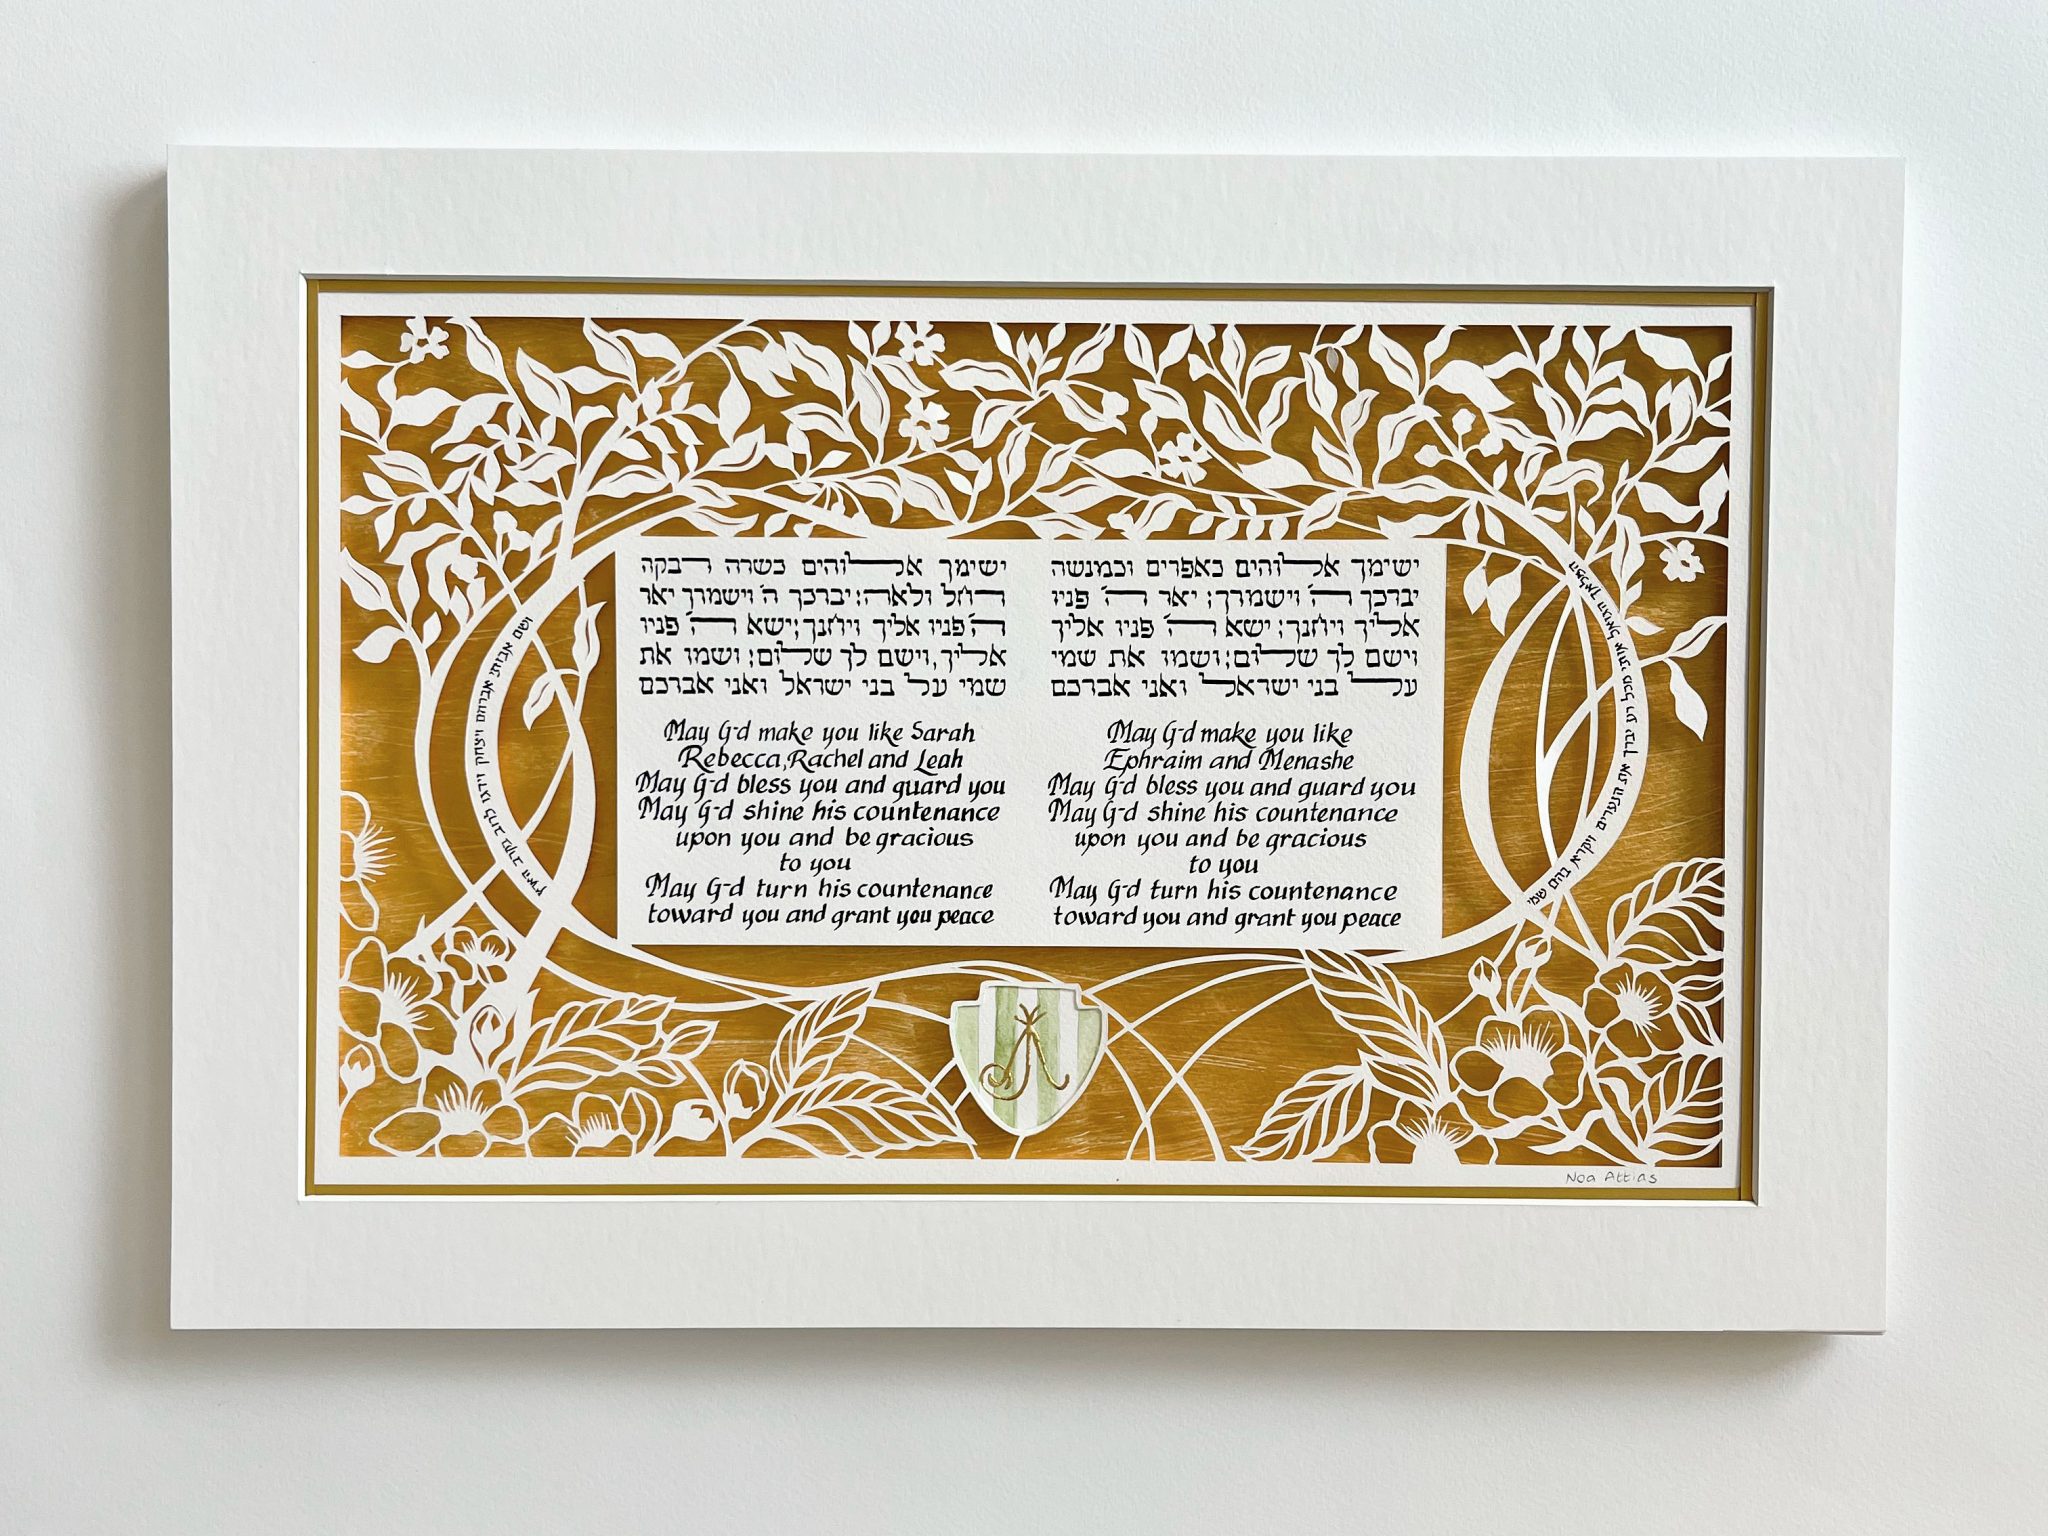 המלאך הגואל אותי מכל רע יברך את הנערים ויקרא בהם שמי
ישימך אלוהים כאפרים וכמנשה
יברכך ה׳ וישמרך; יאר ה׳ פניו
אליך ויחנך; ישא ה׳ פניו אליך
וישם לך שלום; ושמו את שמי
על בני ישראל ואני אברכם
May G-d make you like
Ephraim and Menashe
May G-d bless you and guard you
May G-d shine his countenance
upon you and be gracious
to you
May G-d turn his countenance
toward you and grant you peace
ישימך אלוהים כשרה רבקה
רחל ולאה; יברכך ה׳ וישמרך יאר
ה׳ פניו אליך ויחנך; ישא ה׳ פניו
אליך, וישם לך שלום; ושמו את
שמי על בני ישראל ואני אברכם
May G-d make you like Sarah
Rebecca, Rachel and Leah
May G-d bless you and guard you
May G-d shine his countenance
upon you and be gracious
to you
May G-d turn his countenance
toward you and grant you peace
ושם אבותי אברהם ויצחק וידגו לרוב בקרב הארץ
Noa Attias